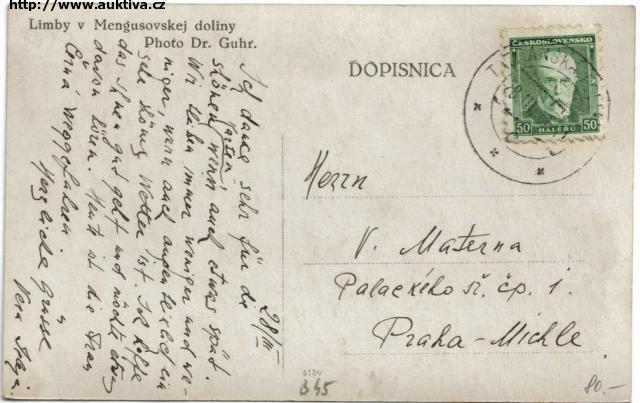 http://www.auktiva.cz
Limby v Mengusovskej doliny
Photo Dr. Guhr.
DOPISNICA
ČESKOSLOVENSKO
50 50
HALÉŘŮ
28/III
Ich danke sehr für die
schönen Karten wenn auch etwas spät.
Wir bleiben immer weniger und we-
niger, wenn auch augenblicklich ein
sehr schönes Wetter ist. Ich hoffe
das Ihnen gut geht und möchte etwas
davon hören. Heute ist die Frau
Erna weggefahren.
Herzliche Grüsse
Herrn
V. Materna
Palackého tř. čp. 1.
Praha-Michle.
B45
80.-